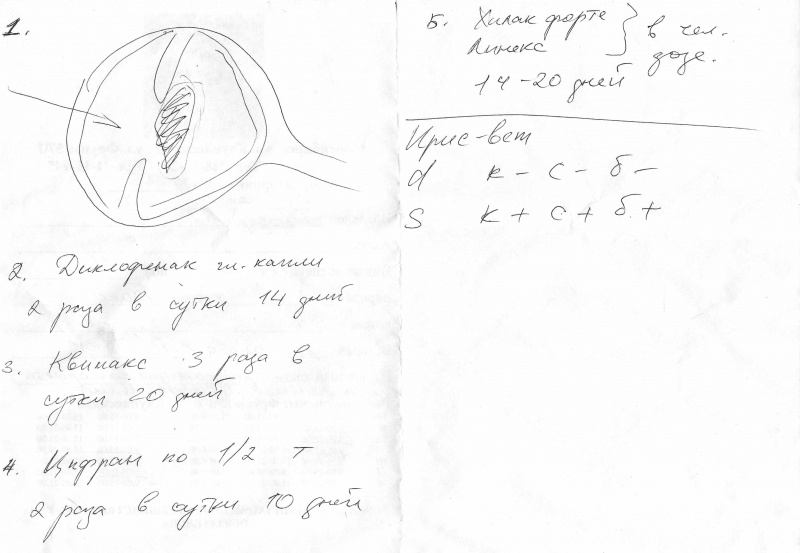 1.
2. Диклофенак гл. капли
2 раза в сутки 14 дней
3. Квинакс 3 раза в
сутки 20 дней
4. Цифран по 1/2 т
2 раза в сутки 10 дней
5. Хилак форте
Линекс
} в чел. дозе.
14-20 дней
Ирис-вет
d к - с - б -
S к + с + б +